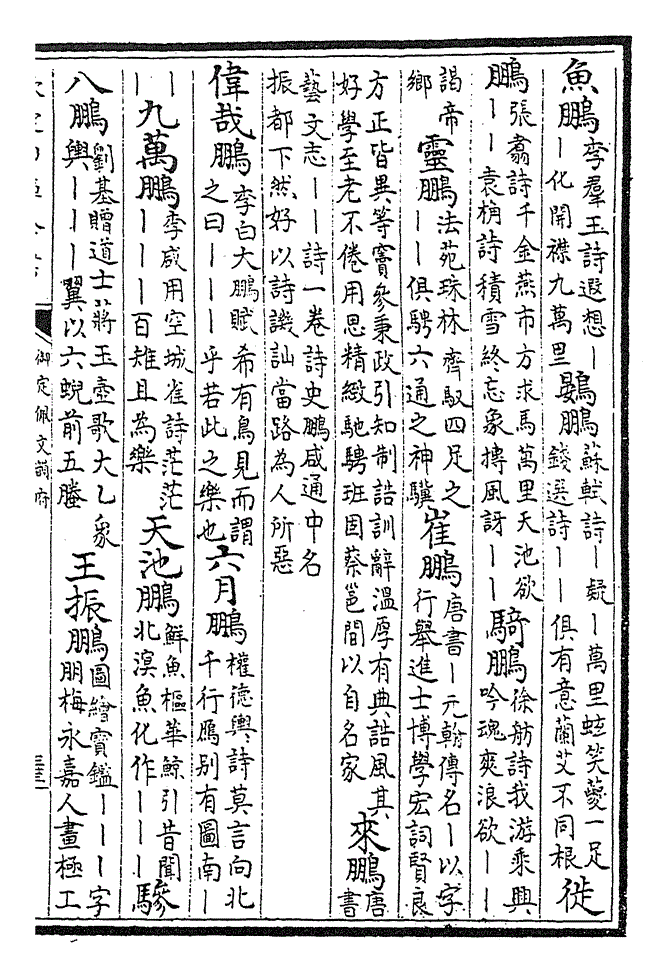 魚鵬 李羣玉詩遐想｜｜化開襟九萬里 鷃鵬 蘇軾詩｜疑｜萬里蚿笑夔一足錢選詩｜｜俱有意蘭艾不同根 徙
鵬 張翥詩千金燕市方求馬萬里天池欲｜｜袁桷詩積雪終忘象摶風訝｜｜ 騎鵬 徐舫詩我游乘興吟魂爽浪欲｜｜
謁帝鄉 靈鵬 法苑珠林齊馭四足之｜｜俱騁六通之神驥 崔鵬 唐書｜元翰傳名｜以字行舉進士博學宏詞賢良
方正皆異等竇參秉政引知制誥訓辭溫厚有典誥風其好學至老不倦用思精緻馳騁班固蔡邕間以自名家 來鵬 唐書
藝文志｜｜詩一卷詩史鵬咸通中名振都下然好以詩譏訕當路為人所惡
偉哉鵬 李白大鵬賦希有鳥見而謂之曰｜｜｜乎若此之樂也 六月鵬 權德輿詩莫言向北千行鴈别有圖南｜
｜｜ 九萬鵬 李咸用空城雀詩茫茫｜｜｜百雉且為樂 天池鵬 鮮魚樞華鯨引昔聞北溟魚化作｜｜｜ 驂
八鵬輿 劉基贈道士蔣玉壺歌大乙象｜｜｜翼以六蜺前五螣 王振鵬 圖繪寶鑑｜｜｜字朋梅永嘉人畫極工
御定佩文韻府